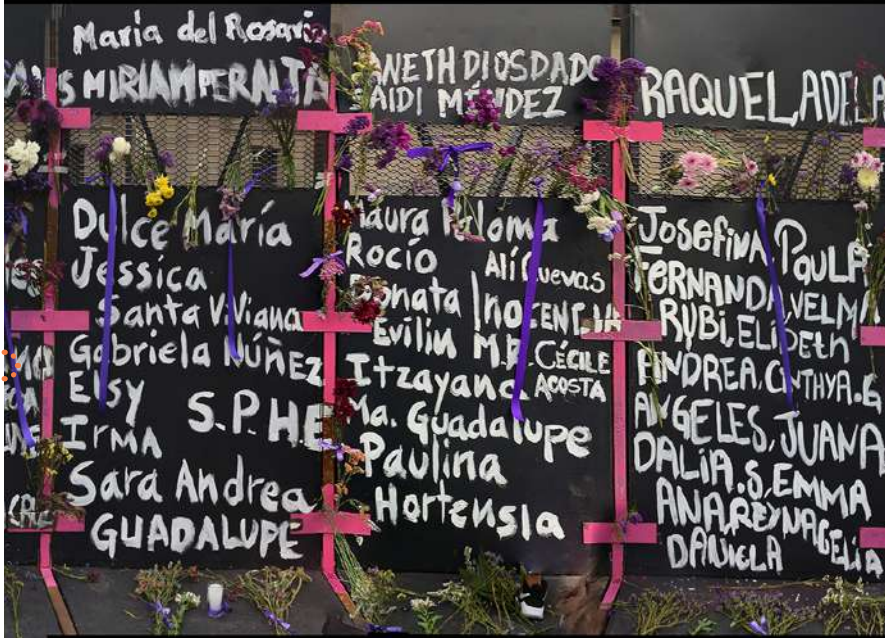 Maria del Rosari
MIRIAM PERALTA
ANETH DIOSDADO
AIDI MÉNDEZ
RAQUEL ADELA
Dulce María
Jessica
Santa Viviana
Gabriela Núñez
Elsy
S.P.HE
Irma
Sara Andrea
GUADALUPE
aura Paloma
Rocío
Alí Cuevas
Donata Inocencia
Evilin M.R. CÉCILE
Itzayana ACOSTA
Ma. Guadalupe
Paulina
Hortensia
Josefina Paula
FERNANDA, VELMA
RUBI, ELIBETH
ANDREA, CINTHYA.G
ANGELES, JUANA
DALIA.S, EMMA
ANA, REYNA, GELIA
DANIELA